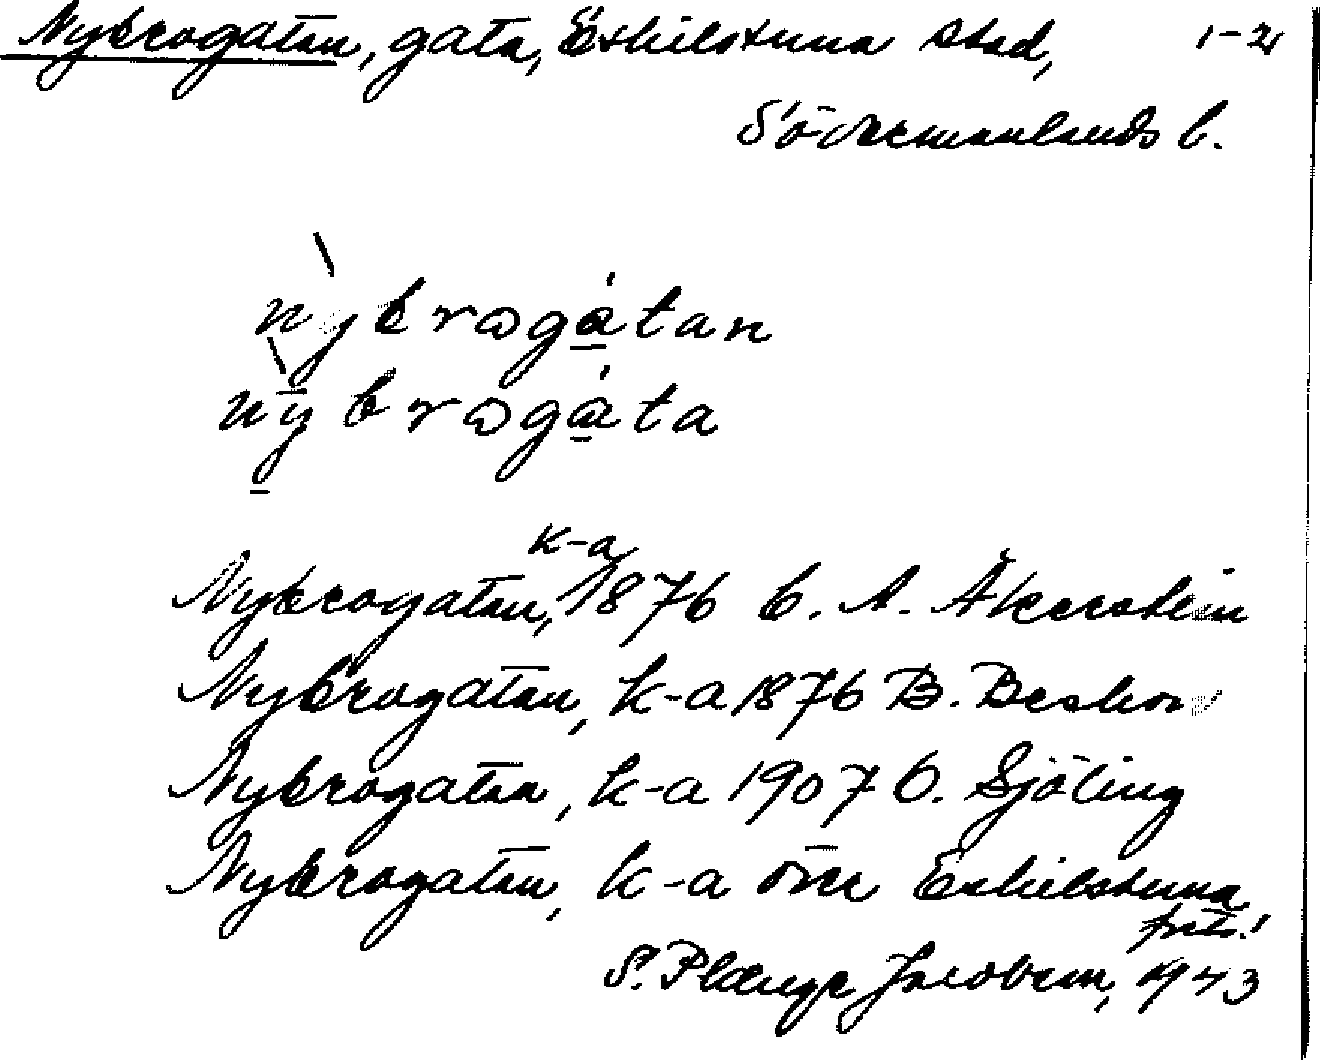 Nybrogatan, gata, Eskilstuna stad, 1-2
Södermanlands l.
nybrogatan
nybrogata
k-a
Nybrogatan, 1876 C. A. Åkerstein
Nybrogatan, k-a 1876 B. Beskow
Nybrogatan, k-a 1907 O. Sjöling
Nybrogatan, k-a över Eskilstuna
S. Plænge Jacobson, 1943